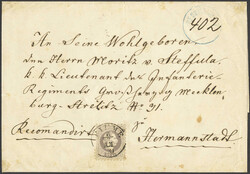 402
An Seine Wohlgeboren
den Herrn Moritz v. Steffula
k k Lieutenant des Infanterie
Regiments Großherzog Mecklen-
burg-Strelitz No 31.
Recomandirt
Hermannstadt